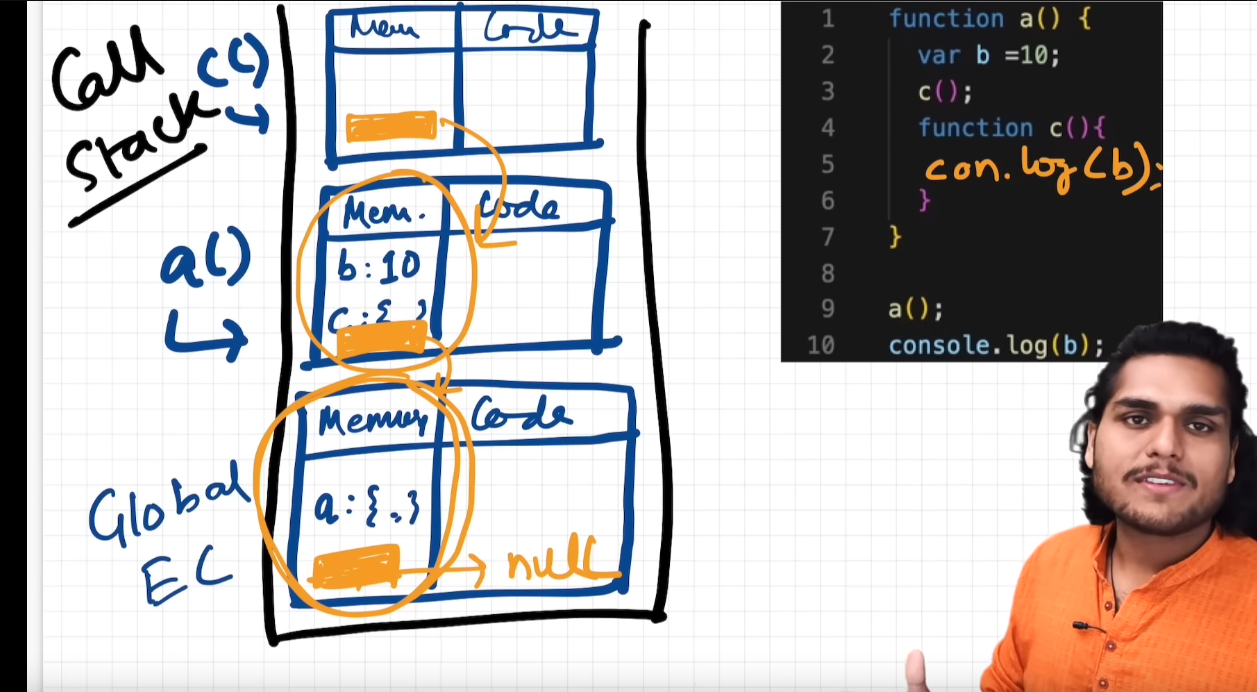 Call
Stack
c()
Mem
Code
a()
Mem.
Code
b : 10
c : {
Global
EC
Memory
Code
a : { . }
null
1 function a() {
2 var b =10;
3 c();
4 function c(){
5 con.log(b);
6 }
7 }
8
9 a();
10 console.log(b);